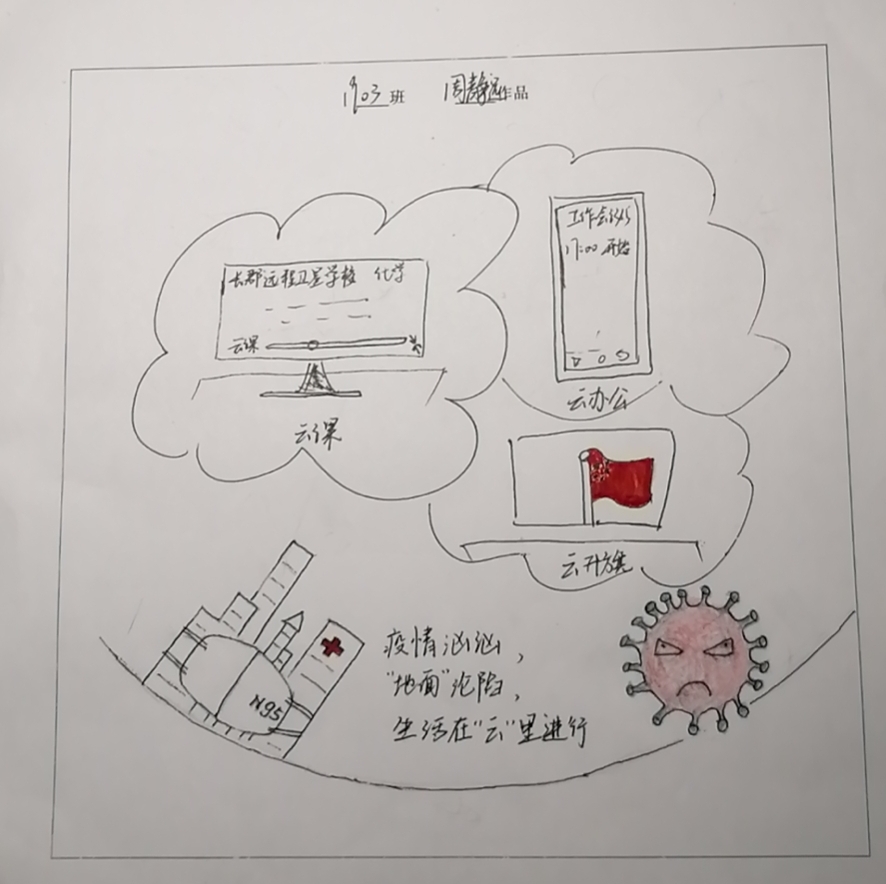 1903班 周静远作品
工作会议
17:00 开始
长郡远程卫星学校 化学
云课
云办公
云课
云升旗
疫情汹汹，
"地面"沦陷，
生活在"云"里进行
N95